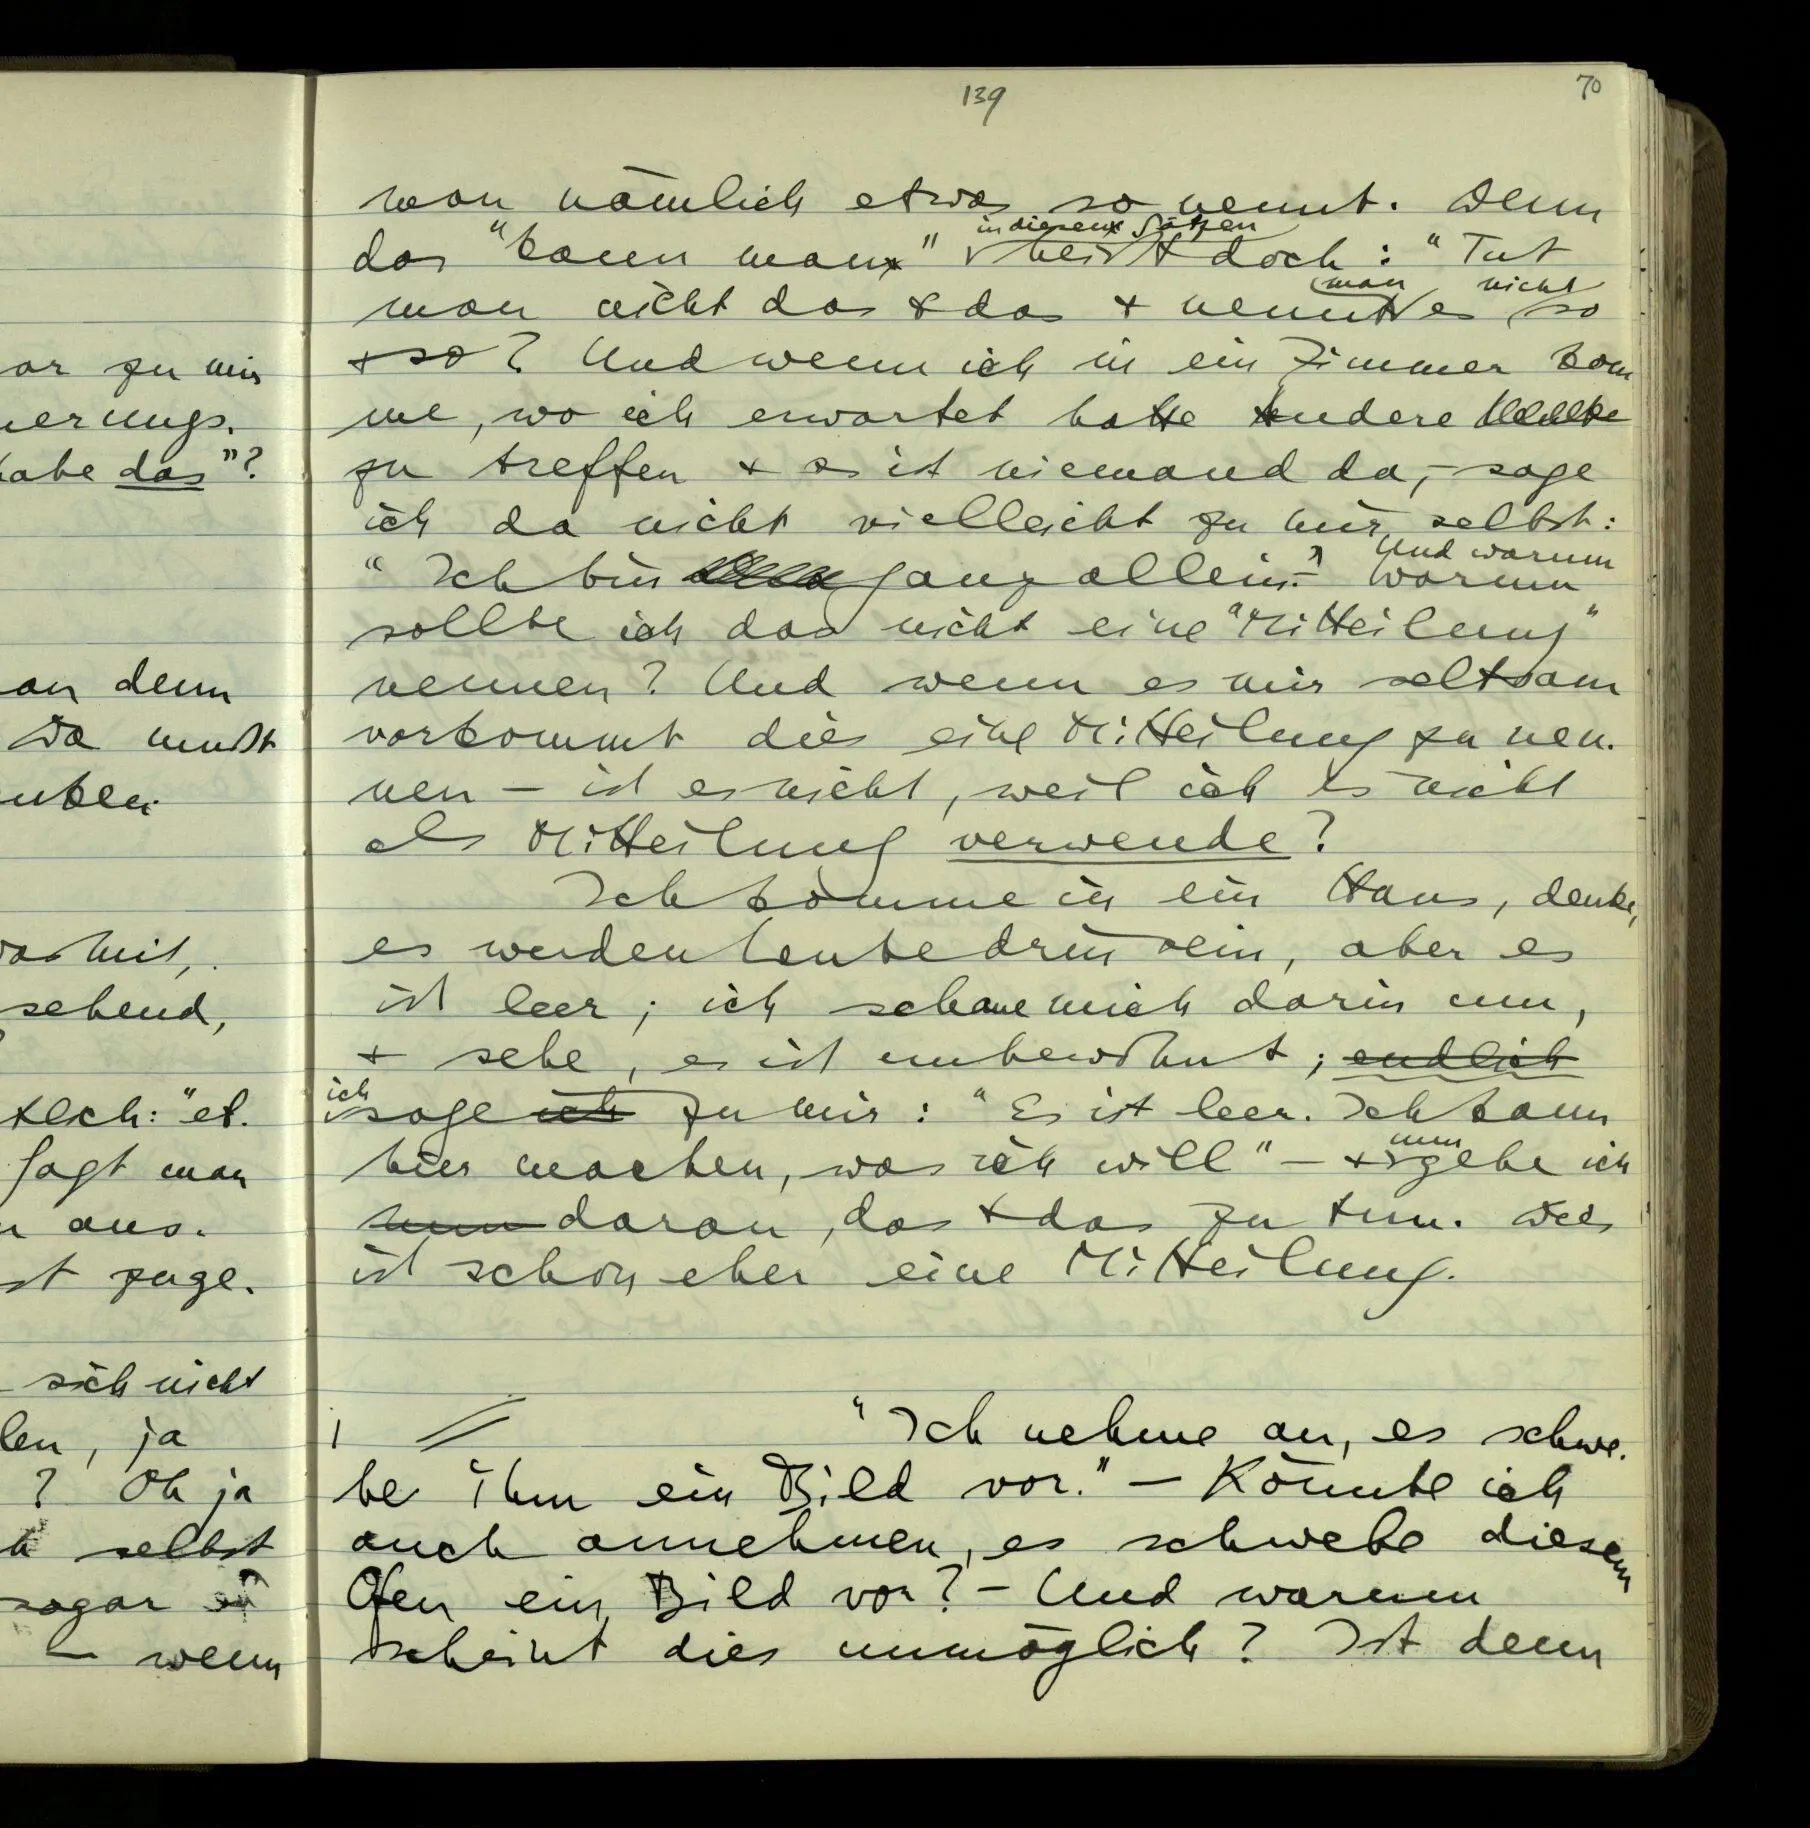 139
70
man nämlich etwas so nennt. Denn
in diesen Sätzen
das "kann man" heißt doch: "Tut
man nicht
man nicht das & das & nennt es so
& so? Und wenn ich in ein Zimmer kom
me, wo ich erwartet hatte Andere
zu treffen & es ist niemand da, – sage
ich da nicht vielleicht zu mir selbst:
Und warum
"Ich bin ganz allein." Warum
sollte ich das nicht eine "Mitteilung"
nennen? Und wenn es mir seltsam
vorkommt dies eine Mitteilung zu nen-
nen – ist es nicht, weil ich es nicht
als Mitteilung verwende?
Ich komme in ein Haus, denke,
es werden Leute drin sein, aber es
ist leer; ich schaue mich darin um,
& sehe, es ist unbewohnt; endlich
ich
sage ich zu mir: "Es ist leer. Ich kann
nun
hier machen, was ich will" – & gehe ich
nun daran, das & das zu tun. Dies
ist schon eher eine Mitteilung.
"Ich nehme an, es schwe-
be ihm ein Bild vor." – Könnte ich
auch annehmen, es schwebe diesem
Ofen ein Bild vor? – Und warum
scheint dies unmöglich? Ist denn
ar zu mir
nerungs-
habe das"?
an denn
Da mußt
enken
sehend,
"et-
sagt man
n aus.
st zuge-
sich nicht
len, ja
? Oh ja
selbst
sogar
– wenn